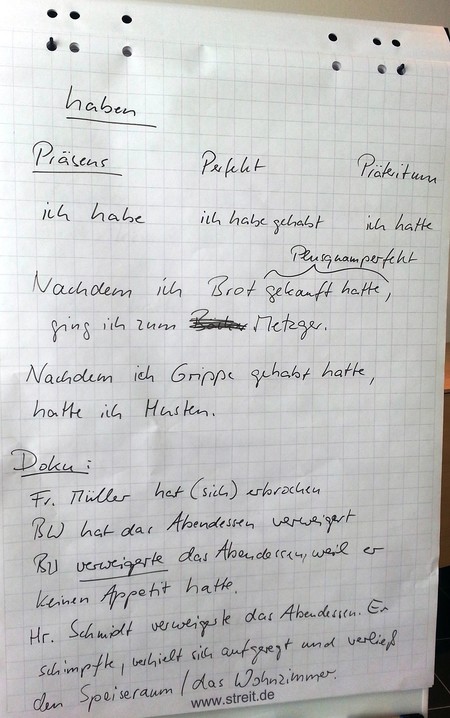 haben
Präsens Perfekt Präteritum
ich habe ich habe gehabt ich hatte
Plusquamperfekt
Nachdem ich Brot gekauft hatte,
ging ich zum Metzger.
Nachdem ich Grippe gehabt hatte,
hatte ich Husten.
Doku:
Fr. Müller hat (sich) erbrochen
BW hat das Abendessen verweigert
BW verweigerte das Abendessen, weil er
keinen Appetit hatte.
Hr. Schmidt verweigerte das Abendessen. Er
schimpfte, verhielt sich aufgeregt und verließ
den Speiseraum / das Wohnzimmer.
www.streit.de